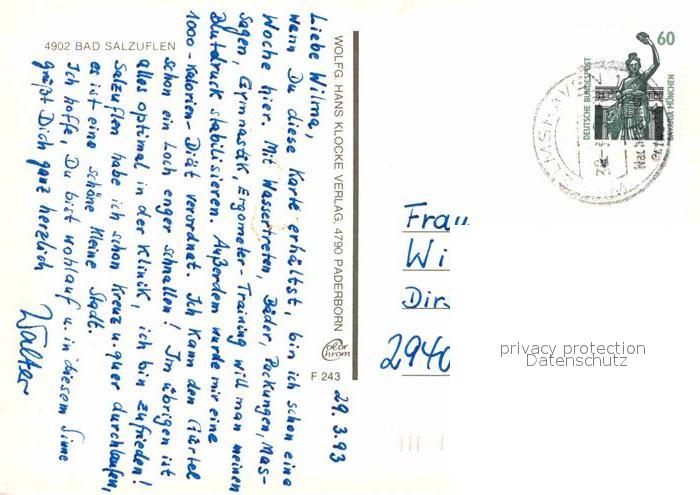 4902 BAD SALZUFLEN
29.3.93
Liebe Wilma,
wenn Du diese Karte erhältst, bin ich schon eine
Woche hier. Mit Wassertreten, Bäder, Packungen, Mas-
sagen, Gymnastik, Ergometer-Training will man meinen
Blutdruck stabilisieren. Außerdem wurde mir eine
1000-Kalorien-Diät verordnet. Ich kann den Gürtel
schon ein Loch enger schnallen! Im übrigen ist
alles optimal in der Klinik, ich bin zufrieden!
Salzuflen habe ich schon kreuz u. quer durchlaufen,
es ist eine schöne kleine Stadt.
Ich hoffe, Du bist wohlauf u. in diesem Sinne
grüßt Dich ganz herzlich
Walter
WOLFG. HANS KLOCKE VERLAG, 4790 PADERBORN
color
chrom
F 243
60
DEUTSCHE BUNDESPOST
BAVARIA MÜNCHEN
Frau
Wi
Dir
2940
privacy protection
Datenschutz